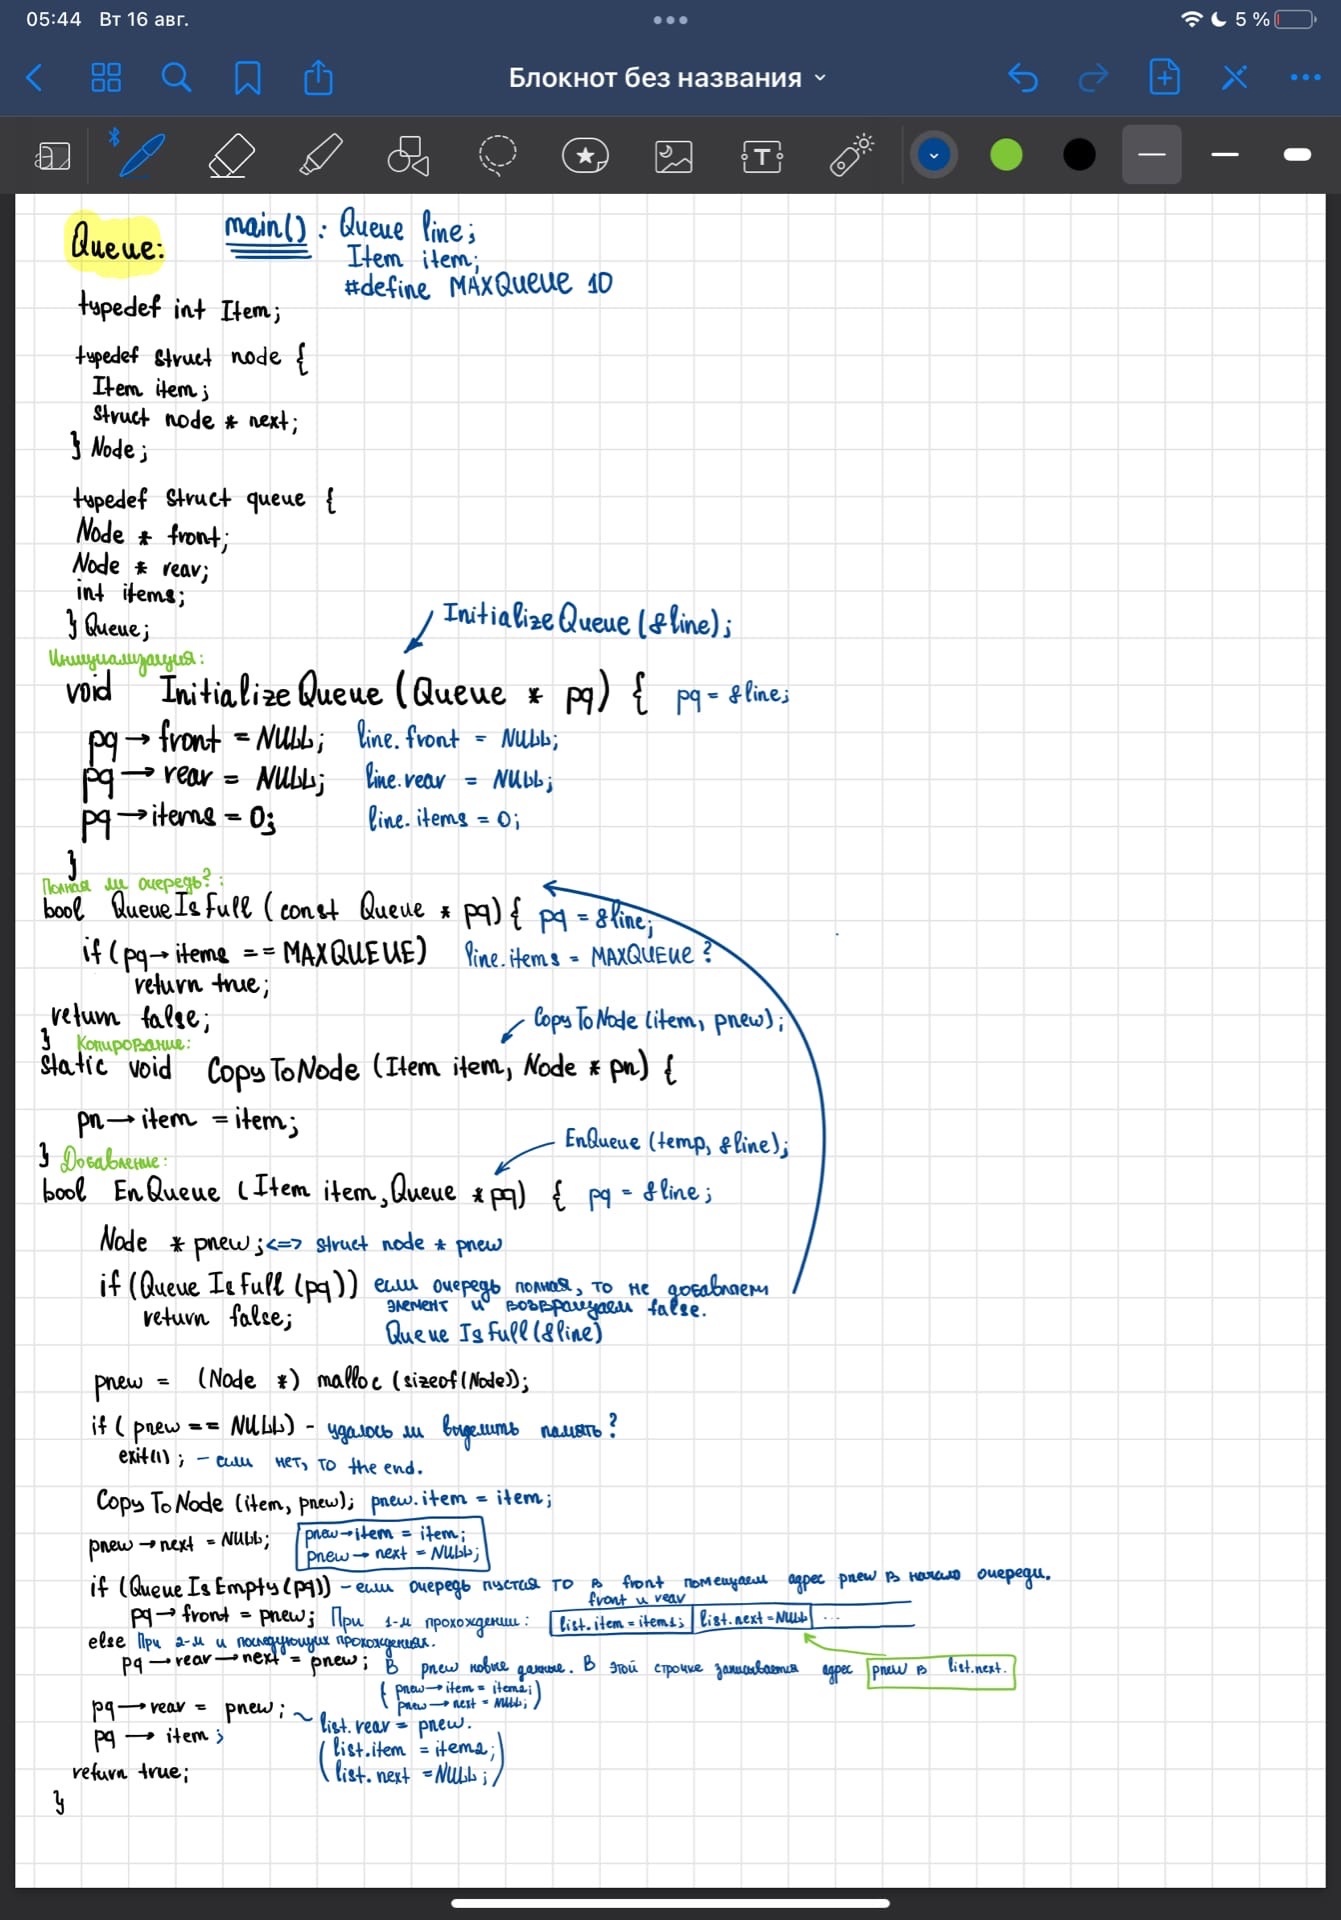 05:44 Вт 16 авг.
5 %
Блокнот без названия
Queue:
main() : Queue line;
Item item;
#define MAXQueue 10
typedef int Item;
typedef struct node {
Item item;
struct node * next;
} Node;
typedef struct queue {
Node * front;
Node * rear;
int items;
} Queue;
InitializeQueue (&line);
Инициализация:
void InitializeQueue (Queue * pq) { pq = &line;
pq → front = NULL; line.front = NULL;
pq → rear = NULL; line.rear = NULL;
pq → items = 0; line.items = 0;
}
Полная ли очередь?:
bool QueueIsFull (const Queue * pq) { pq = &line;
if (pq → items == MAXQUEUE) line.items = MAXQUEUE ?
return true;
return false;
CopyToNode (item, pnew);
} Копирование:
static void CopyToNode (Item item, Node * pn) {
pn → item = item;
EnQueue (temp, &line);
} Добавление:
bool EnQueue (Item item, Queue * pq) { pq = &line;
Node * pnew; <=> struct node * pnew
if (QueueIsFull (pq)) если очередь полная, то не добавляем
элемент и возвращаем false.
return false;
QueueIsFull (&line)
pnew = (Node *) malloc (sizeof(Node));
if ( pnew == NULL) - удалось ли выделить память?
exit(1) ; - если нет, то the end.
CopyToNode (item, pnew); pnew.item = item;
pnew → next = NULL; pnew → item = item;
pnew → next = NULL;
if (QueueIsEmpty(pq)) - если очередь пустая то в front помещаем адрес pnew в начало очереди.
front и rear
pq → front = pnew; При 1-м прохождении: list.item = item1; list.next = NULL ...
else При 2-м и последующих прохождениях.
pq → rear → next = pnew; В pnew новые данные. В этой строчке записывается адрес pnew в list.next.
( pnew → item = item2;
pnew → next = NULL; )
pq → rear = pnew; ~ list.rear = pnew.
pq → item ; ( list.item = item2;
return true; list.next = NULL; )
}